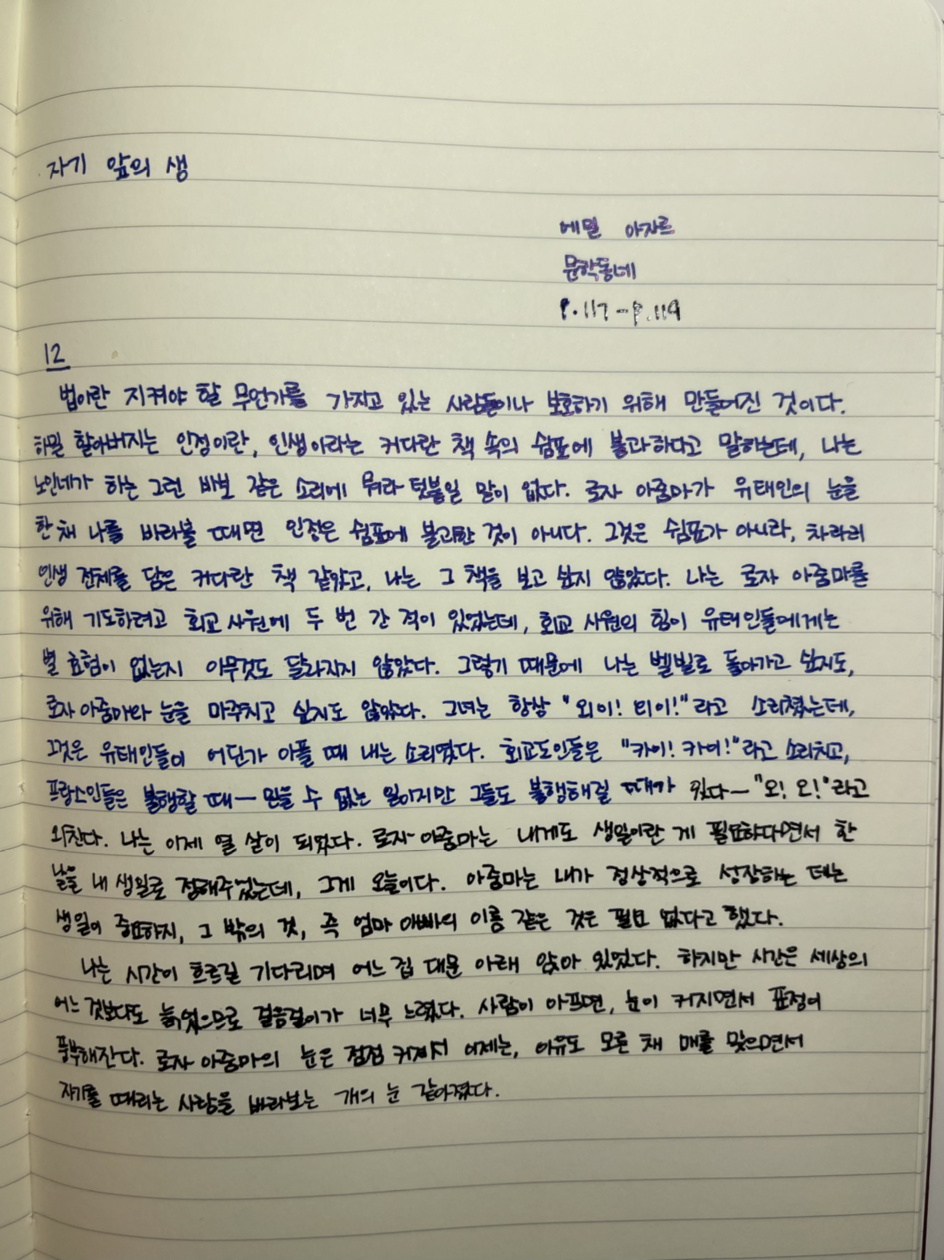 자기 앞의 생
에밀 아자르
문학동네
P.117-P.119
12
법이란 지켜야 할 무언가를 가지고 있는 사람들이나 보호하기 위해 만들어진 것이다.
하밀 할아버지는 인정이란, 인생이라는 커다란 책 속의 쉼표에 불과하다고 말하는데, 나는
노인네가 하는 그런 바보 같은 소리에 뭐라 덧붙일 말이 없다. 로자 아줌마가 유태인의 눈을
한 채 나를 바라볼 때면 인정은 쉼표에 불과한 것이 아니다. 그것은 쉼표가 아니라, 차라리
인생 전체를 담은 커다란 책 같았고, 나는 그 책을 보고 싶지 않았다. 나는 로자 아줌마를
위해 기도하려고 회교 사원에 두 번 간 적이 있었는데, 회교 사원의 힘이 유태인들에게는
별 효험이 없는지 아무것도 달라지지 않았다. 그렇기 때문에 나는 벨빌로 돌아가고 싶지도,
로자 아줌마와 눈을 마주치고 싶지도 않았다. 그녀는 항상 "외이! 외이!"라고 소리쳤는데,
그것은 유태인들이 어딘가 아플 때 내는 소리였다. 회교도인들은 "카이! 카이!"라고 소리치고,
프랑스인들은 불행할 때—믿을 수 없는 일이지만 그들도 불행해질 때가 있다—"오! 오!"라고
외친다. 나는 이제 열 살이 되었다. 로자 아줌마는 내게도 생일이란 게 필요하다면서 한
날을 내 생일로 정해주었는데, 그게 오늘이다. 아줌마는 내가 정상적으로 성장하는 데는
생일이 중요하지, 그 밖의 것, 즉 엄마 아빠의 이름 같은 것은 필요 없다고 했다.
나는 시간이 흐르길 기다리며 어느 집 대문 아래 앉아 있었다. 하지만 시간은 세상의
어느 것보다도 늙었으므로 걸음걸이가 너무 느렸다. 사람이 아프면, 눈이 커지면서 표정이
풍부해진다. 로자 아줌마의 눈은 점점 커져서 이제는, 이유도 모른 채 매를 맞으면서
자기를 때리는 사람을 바라보는 개의 눈 같아졌다.